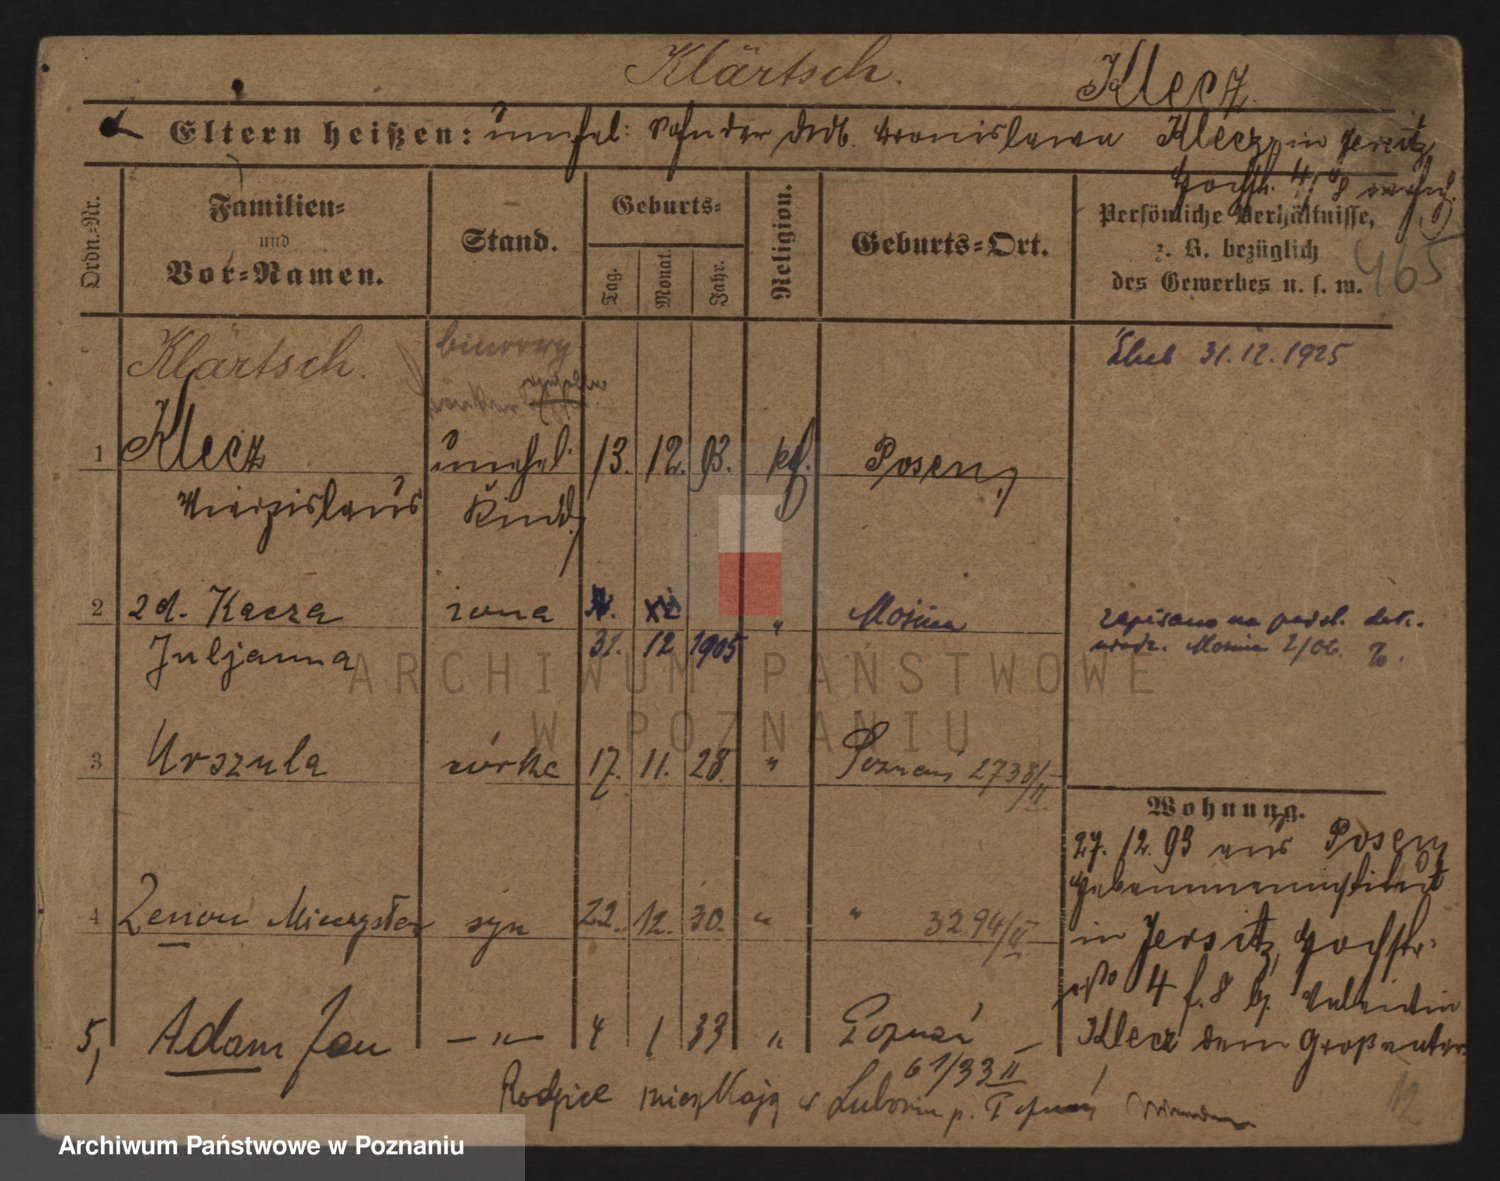 Klärtsch. Klecz.
Eltern heißen: unehel: Sohn der Bronislawa Klecz in Jersitz
Hochstr. 4
Ordn.-Nr.
Familien-
und
Vor-Namen.
Stand.
Geburts-
Tag.
Monat.
Jahr.
Religion.
Geburts-Ort.
Persönliche Verhältnisse,
z. B. bezüglich
des Gewerbes u. s. w.
465
Klärtsch.
biurowy
Ślub 31.12.1925
1 Klecz unehel. 13. 12. 93. kf. Posen,
Mieczislaus Kind,
2 zd. Kacza żona XI. XI " Mosina
Juljanna 31. 12 1905
zapisano na podst. dok.
urodz. Mosina 2/06.
3 Urszula córka 17. 11. 28. " Poznań 2738/II
4 Zenon Mieczysław syn 22. 12. 30. " " 3294/II
5, Adam Jan — " — 4 1 33 " Poznań
61/33 II
Rodzice mieszkają w Luboniu p. Poznań
Wohnung.
27. 12. 93 aus Posen
Hebammeninstitut
in Jersitz, Hochstr:
No 4 f. 8 bj. Valentin
Klecz dem Großvater
12
ARCHIWUM PAŃSTWOWE
W POZNANIU
Archiwum Państwowe w Poznaniu